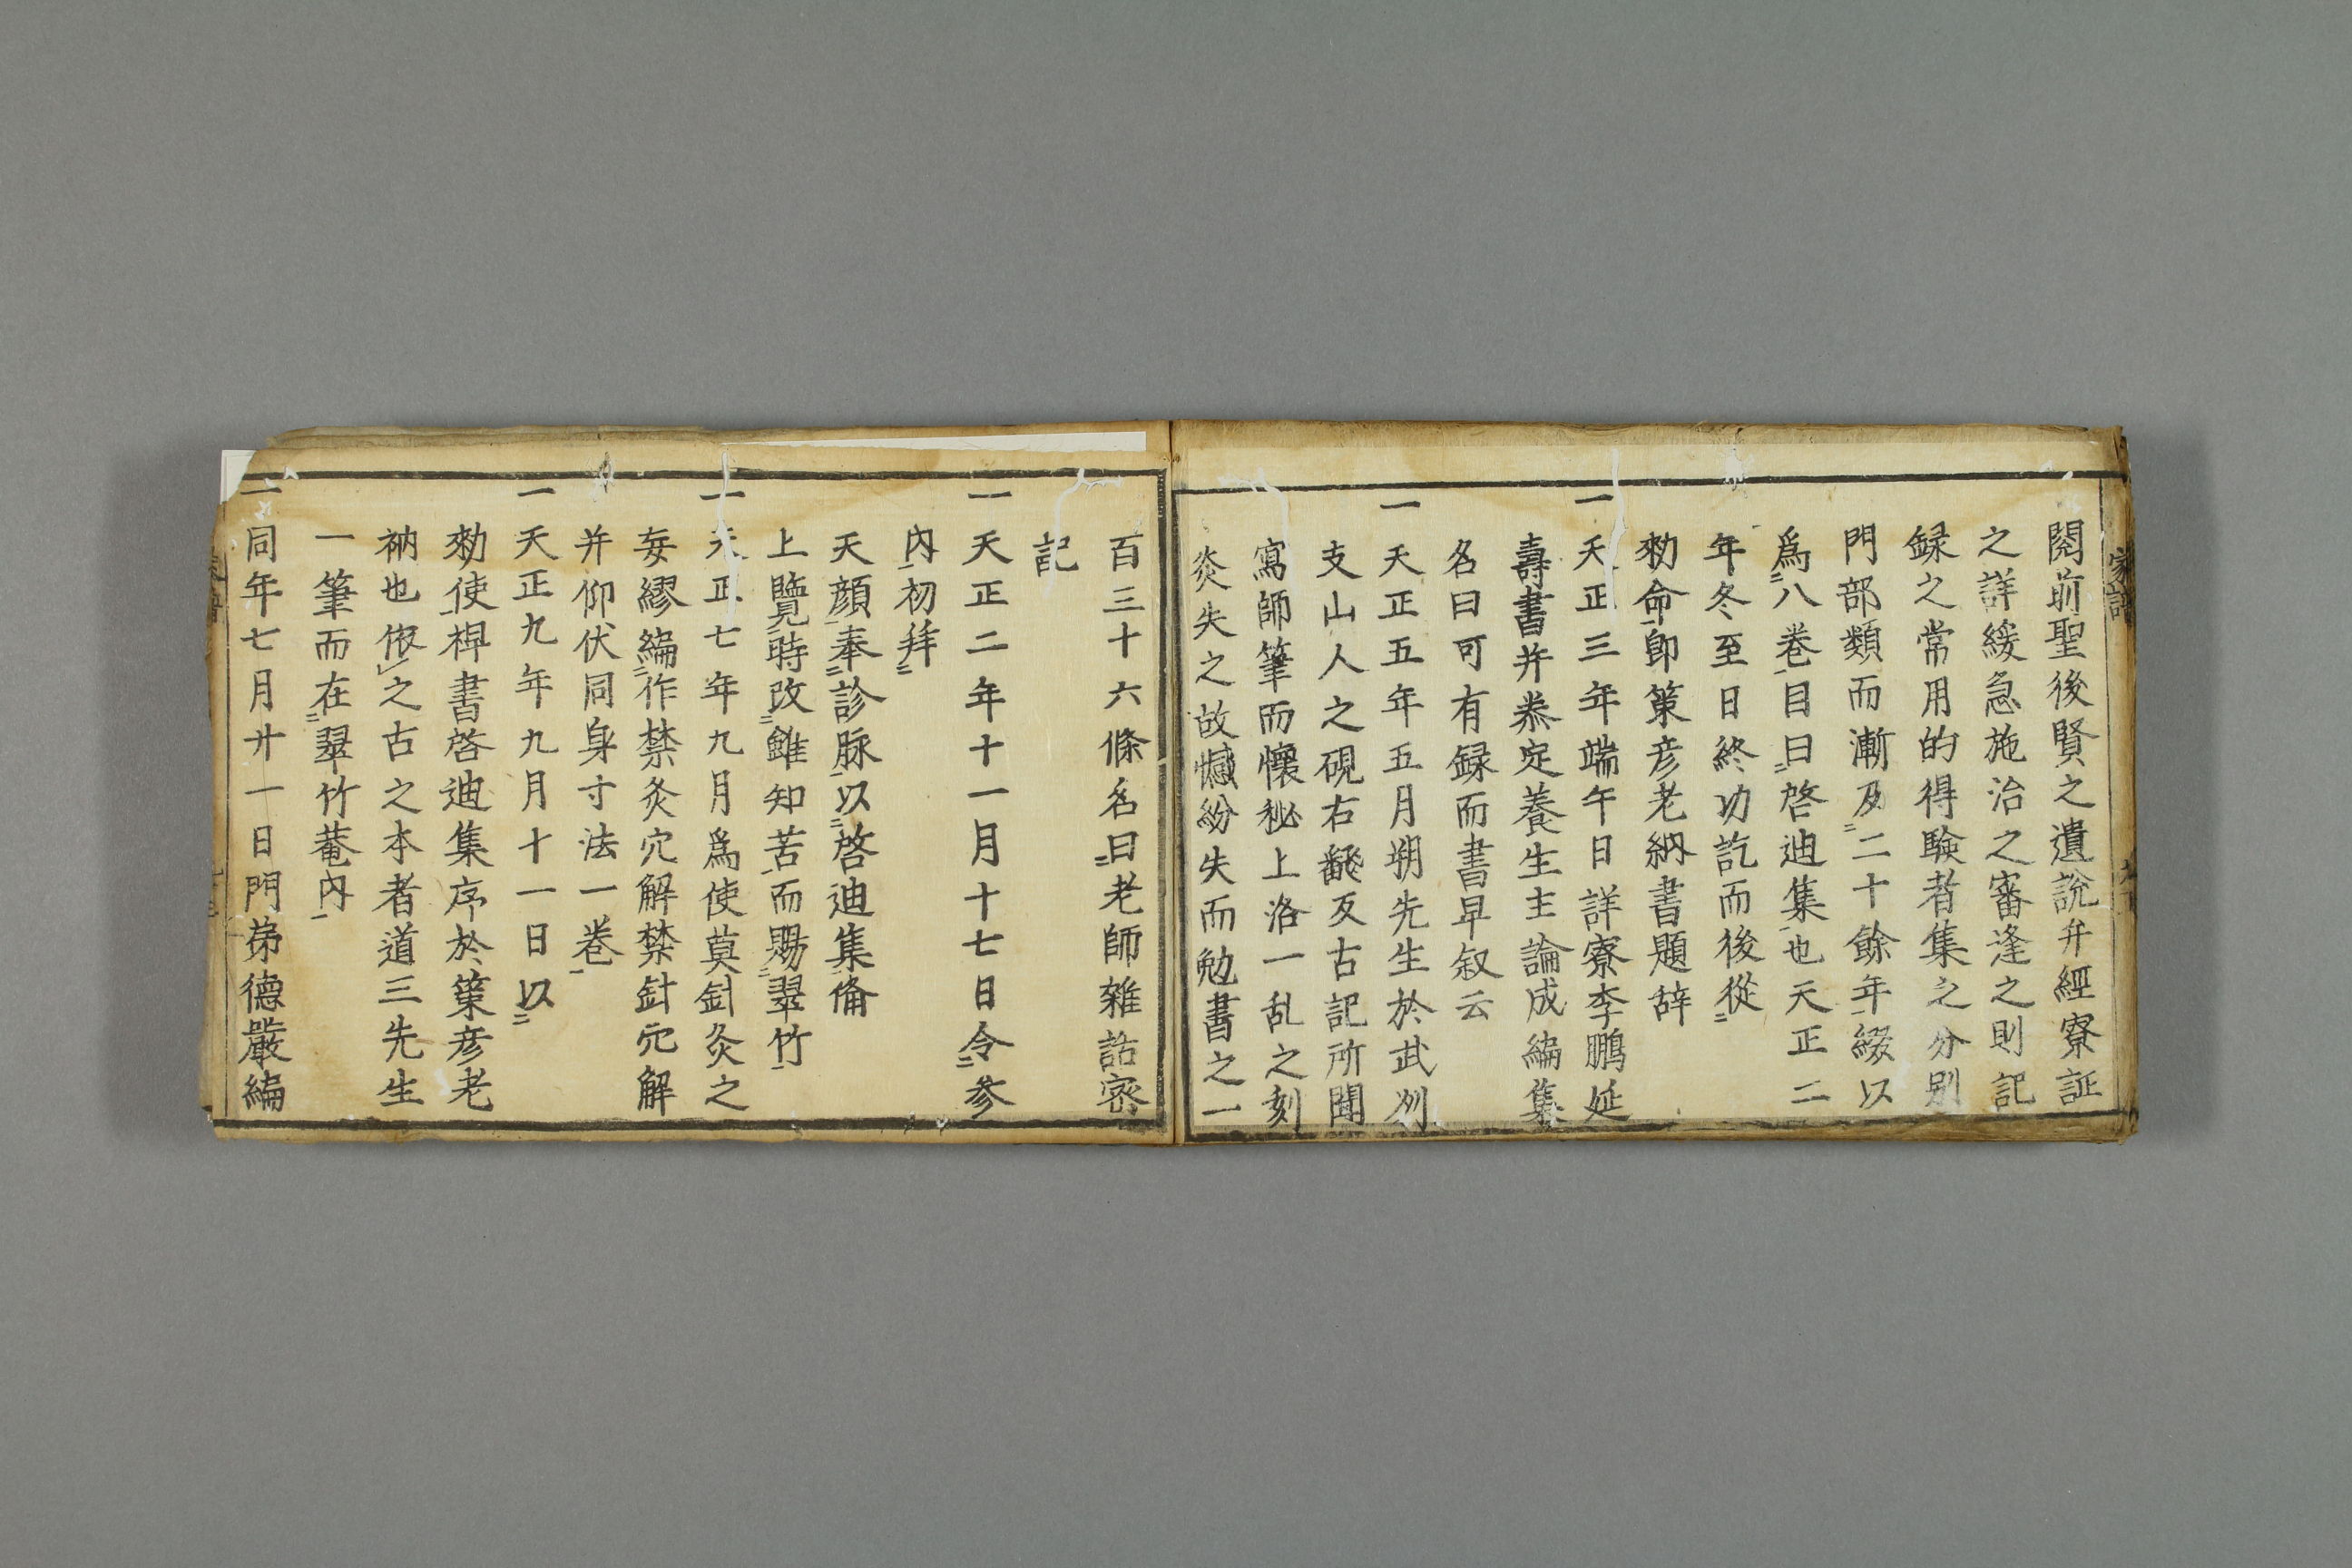 閲前聖後賢之遺說弁經寮証
之詳緩急施治之審逢之則記
録之常用的得験者集之分別
門部類而漸及二十餘年綴以
爲八巻目曰啓迪集也天正二
年冬至日終功訖而後從
勅命即策彦老納書題辞
一天正三年端午日詳寮李鵬延
壽書并叅定養生主論成編集
名曰可有録而書早叙云
一天正五年五月朔先生於武刕
支山人之硯右飜反古記所聞
寫師筆而懷秘上洛一乱之刻
炎失之故憾紛失而勉書之一
百三十六條名曰老師雜話密
記
一天正二年十一月十七日令参
内初拜
天顔奉診脉以啓迪集俻
上覽時改雖知苦而賜翠竹
一天正七年九月爲使莫針灸之
妄繆編作禁灸穴解禁針穴解
并仰伏同身寸法一巻
一天正九年九月十一日以
勅使禆書啓迪集序於策彦老
衲也依之古之本者道三先生
一筆而在翠竹菴内
一同年七月廿一日門苐德嚴編